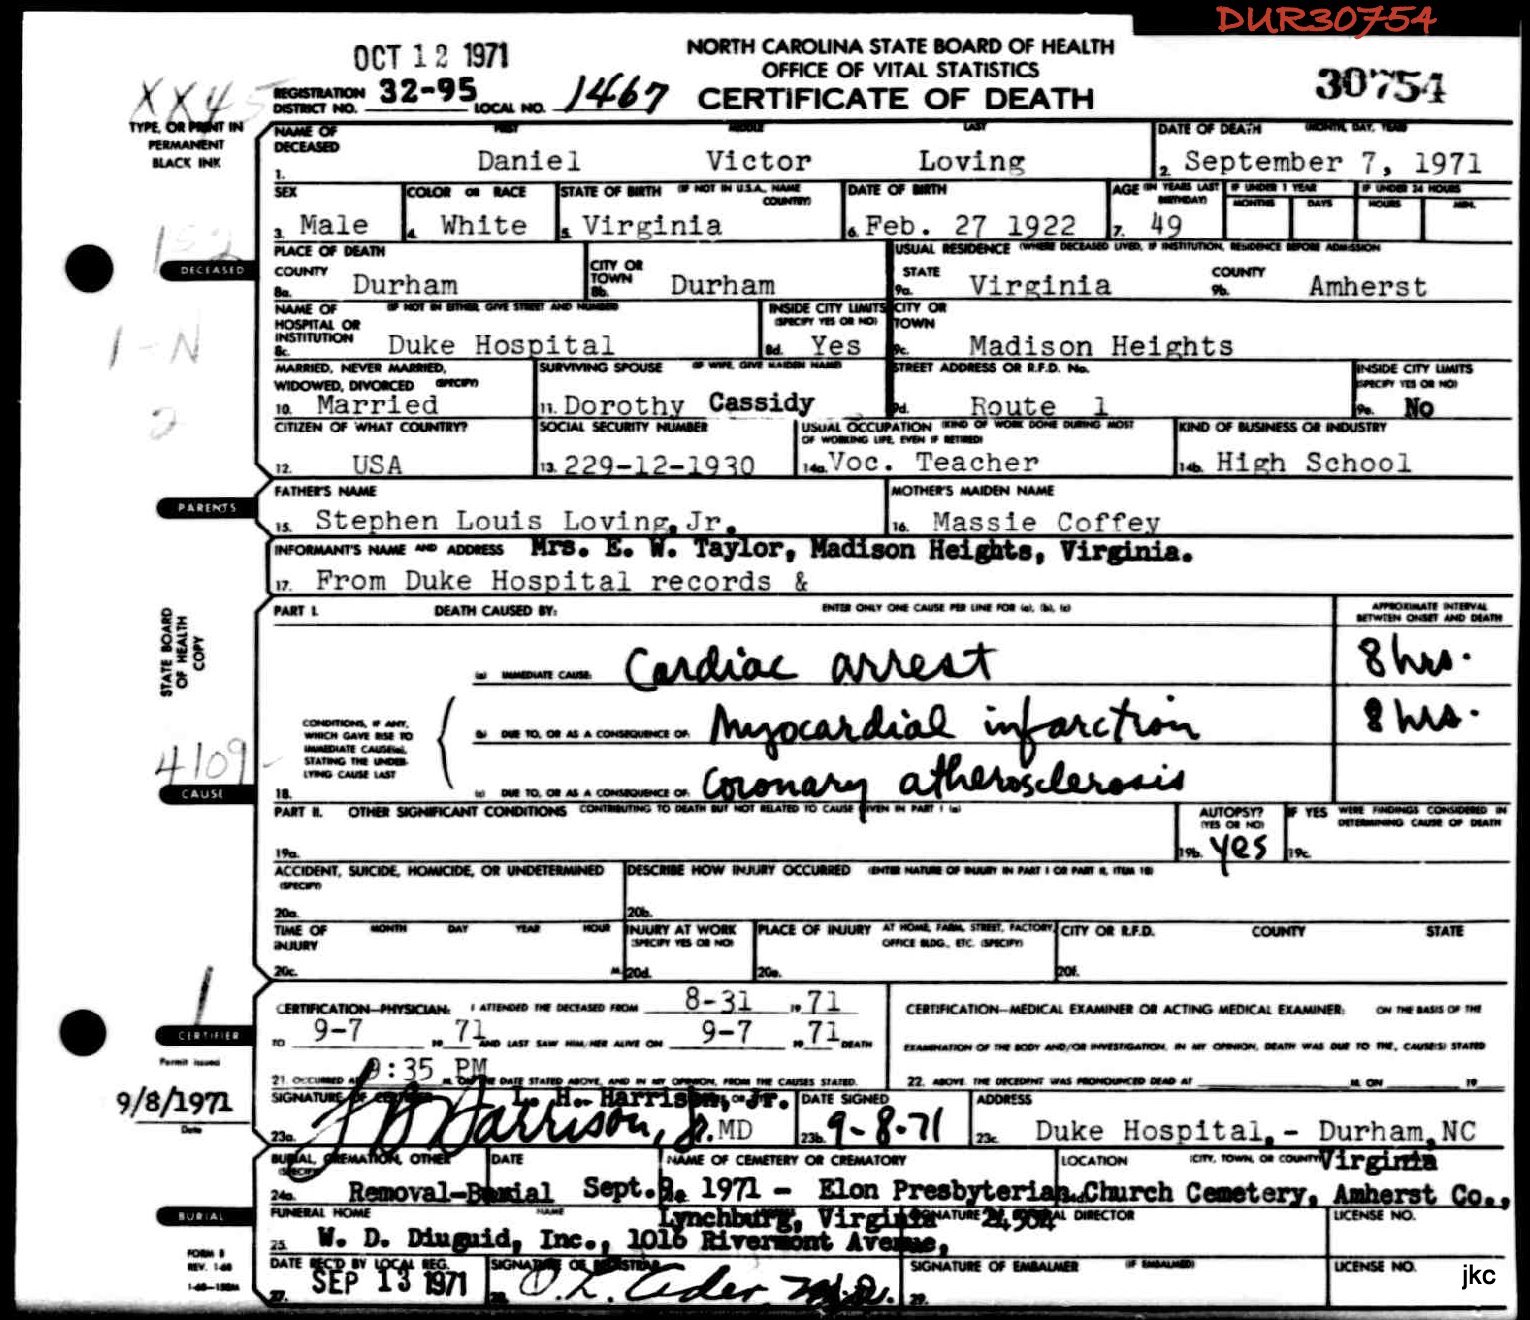 DUR30754
OCT 12 1971
NORTH CAROLINA STATE BOARD OF HEALTH
OFFICE OF VITAL STATISTICS
CERTIFICATE OF DEATH
30754
XX45
REGISTRATION DISTRICT NO. 32-95 LOCAL NO. 1467
TYPE, OR PRINT IN PERMANENT BLACK INK
NAME OF DECEASED FIRST MIDDLE LAST DATE OF DEATH (MONTH, DAY, YEAR)
1. Daniel Victor Loving 2. September 7, 1971
SEX COLOR OR RACE STATE OF BIRTH (IF NOT IN U.S.A., NAME COUNTRY) DATE OF BIRTH AGE (IN YEARS LAST BIRTHDAY) IF UNDER 1 YEAR MONTHS DAYS IF UNDER 24 HOURS HOURS MIN.
3. Male 4. White 5. Virginia 6. Feb. 27 1922 7. 49
DECEASED
PLACE OF DEATH USUAL RESIDENCE (WHERE DECEASED LIVED, IF INSTITUTION, RESIDENCE BEFORE ADMISSION
COUNTY CITY OR TOWN STATE COUNTY
8a. Durham 8b. Durham 9a. Virginia 9b. Amherst
NAME OF HOSPITAL OR INSTITUTION (IF NOT IN EITHER, GIVE STREET AND NUMBER) INSIDE CITY LIMITS (SPECIFY YES OR NO) CITY OR TOWN
8c. Duke Hospital 8d. Yes 9c. Madison Heights
1-N
MARRIED, NEVER MARRIED, WIDOWED, DIVORCED (SPECIFY) SURVIVING SPOUSE (IF WIFE, GIVE MAIDEN NAME) STREET ADDRESS OR R.F.D. No. INSIDE CITY LIMITS (SPECIFY YES OR NO)
10. Married 11. Dorothy Cassidy 9d. Route 1 9e. No
2
CITIZEN OF WHAT COUNTRY? SOCIAL SECURITY NUMBER USUAL OCCUPATION (KIND OF WORK DONE DURING MOST OF WORKING LIFE, EVEN IF RETIRED) KIND OF BUSINESS OR INDUSTRY
12. USA 13. 229-12-1930 14a. Voc. Teacher 14b. High School
PARENTS
FATHER'S NAME MOTHER'S MAIDEN NAME
15. Stephen Louis Loving, Jr. 16. Massie Coffey
INFORMANT'S NAME AND ADDRESS Mrs. E. W. Taylor, Madison Heights, Virginia.
17. From Duke Hospital records &
STATE BOARD OF HEALTH COPY
PART I. DEATH CAUSED BY: ENTER ONLY ONE CAUSE PER LINE FOR (a), (b), (c) APPROXIMATE INTERVAL BETWEEN ONSET AND DEATH
(a) IMMEDIATE CAUSE: Cardiac arrest 8 hrs.
CONDITIONS, IF ANY, WHICH GAVE RISE TO IMMEDIATE CAUSE(a), STATING THE UNDERLYING CAUSE LAST
(b) DUE TO, OR AS A CONSEQUENCE OF: Myocardial infarction 8 hrs.
4109
CAUSE
18. (c) DUE TO, OR AS A CONSEQUENCE OF: Coronary atherosclerosis
PART II. OTHER SIGNIFICANT CONDITIONS CONTRIBUTING TO DEATH BUT NOT RELATED TO CAUSE GIVEN IN PART I (a) AUTOPSY? (YES OR NO) IF YES WERE FINDINGS CONSIDERED IN DETERMINING CAUSE OF DEATH
19a. 19b. yes 19c.
ACCIDENT, SUICIDE, HOMICIDE, OR UNDETERMINED (SPECIFY) DESCRIBE HOW INJURY OCCURRED (ENTER NATURE OF INJURY IN PART I OR PART II, ITEM 18)
20a. 20b.
TIME OF INJURY MONTH DAY YEAR HOUR INJURY AT WORK (SPECIFY YES OR NO) PLACE OF INJURY AT HOME, FARM, STREET, FACTORY, OFFICE BLDG., ETC. (SPECIFY) CITY OR R.F.D. COUNTY STATE
20c. M. 20d. 20e. 20f.
CERTIFICATION—PHYSICIAN: I ATTENDED THE DECEASED FROM 8-31 19 71
TO 9-7 19 71 AND LAST SAW HIM/HER ALIVE ON 9-7 19 71 DEATH
21. OCCURRED AT 9:35 PM M. ON THE DATE STATED ABOVE, AND IN MY OPINION, FROM THE CAUSES STATED.
CERTIFICATION—MEDICAL EXAMINER OR ACTING MEDICAL EXAMINER: ON THE BASIS OF THE
EXAMINATION OF THE BODY AND/OR INVESTIGATION, IN MY OPINION, DEATH WAS DUE TO THE, CAUSE(S) STATED
22. ABOVE. THE DECEDENT WAS PRONOUNCED DEAD AT M. ON 19
CERTIFIER
Permit issued
9/8/1971
Date
SIGNATURE OF CERTIFIER L. H. Harrison, Jr. DATE SIGNED ADDRESS
23a. Harrison, Jr. MD 23b. 9-8-71 23c. Duke Hospital, - Durham, NC
BURIAL, CREMATION, OTHER (SPECIFY) DATE NAME OF CEMETERY OR CREMATORY LOCATION (CITY, TOWN, OR COUNTY) Virginia
24a. Removal-Burial Sept. 9, 1971 - Elon Presbyterian Church Cemetery, Amherst Co.,
BURIAL
FUNERAL HOME NAME Lynchburg, Virginia 24504 SIGNATURE OF FUNERAL DIRECTOR LICENSE NO.
25. W. D. Diuguid, Inc., 1016 Rivermont Avenue,
FORM 8
REV. 1-68
DATE REC'D BY LOCAL REG. SIGNATURE OF REGISTRAR SIGNATURE OF EMBALMER (IF EMBALMED) LICENSE NO.
27. SEP 13 1971 28. 29.
jkc